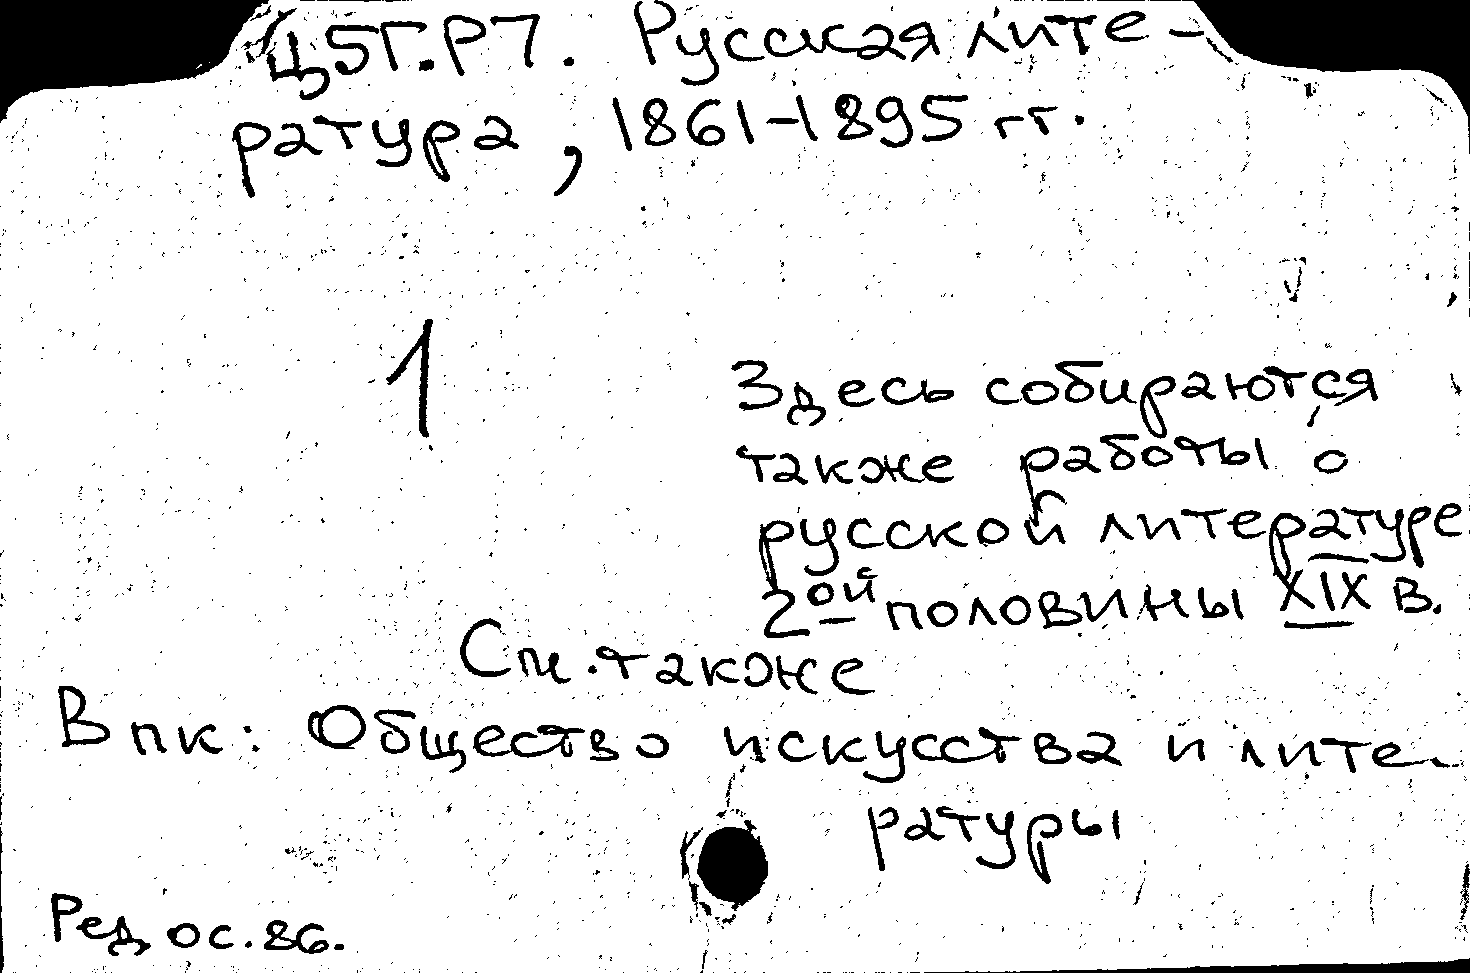 Ц5Г.Р7. Русская лите-
ратура, 1861-1895 гг.
1
Здесь собираются
также работы о
русской литературе
2ой половины XIX в.
См. также
В пк: Общество искусства и лите-
ратуры
Ред ос. 86.